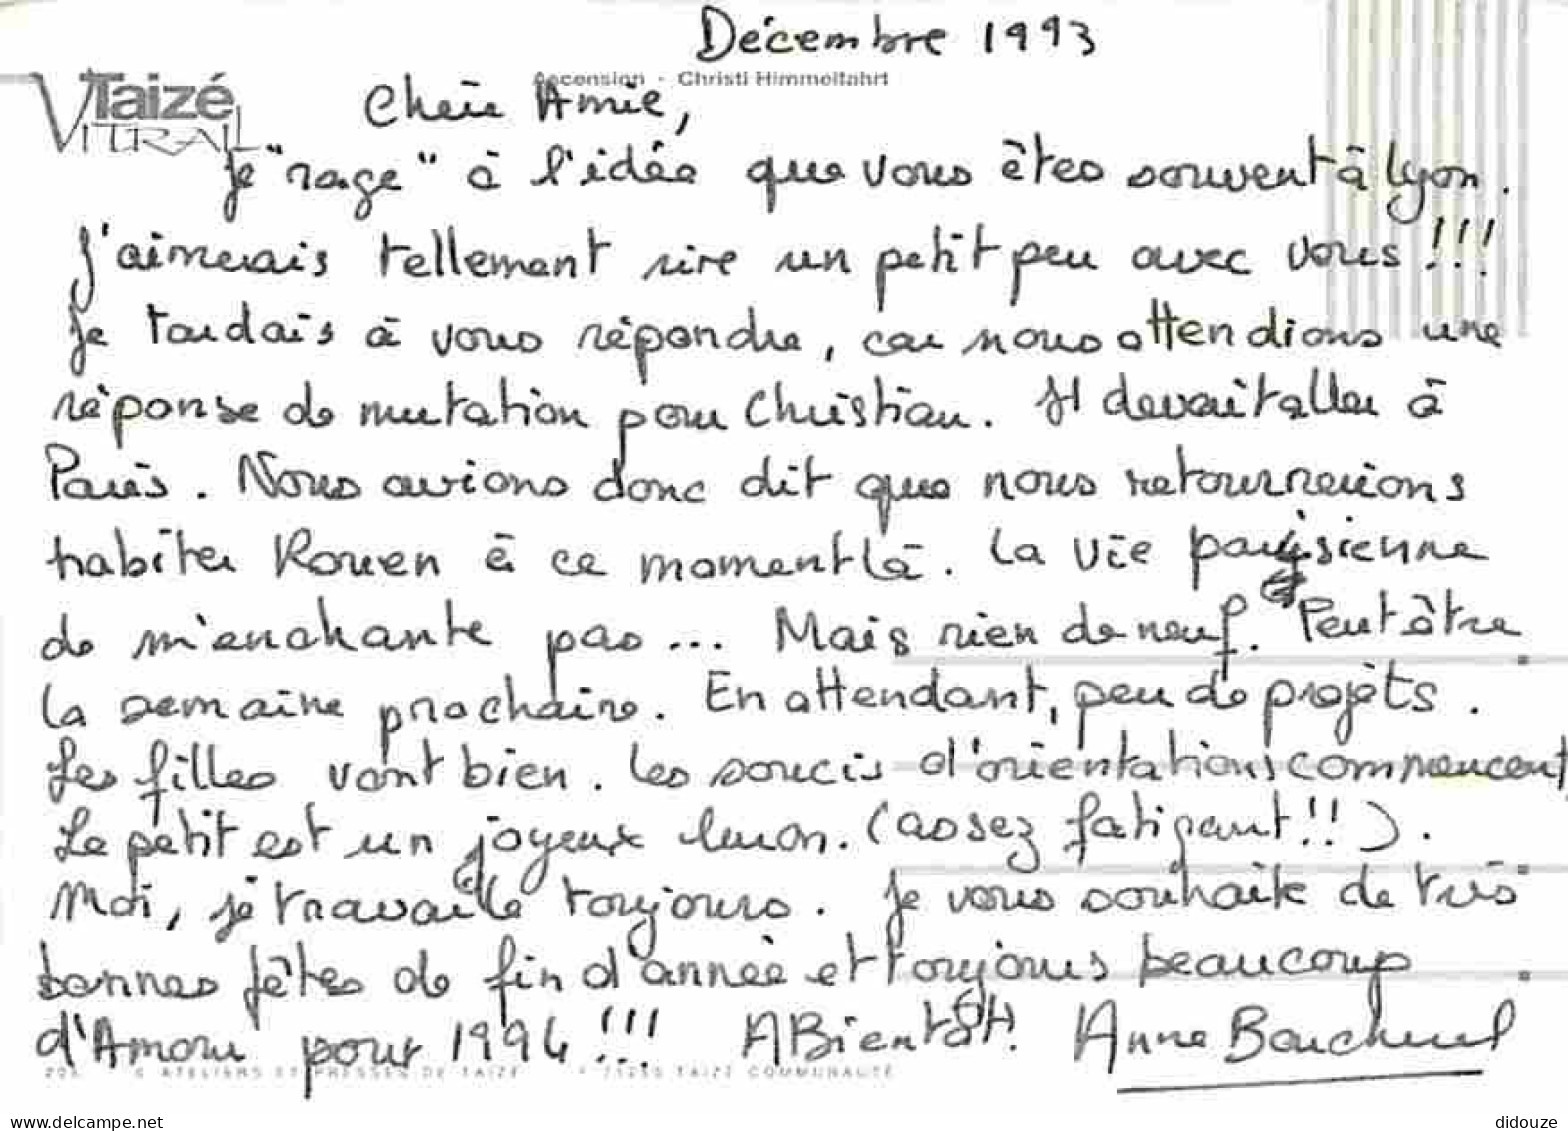 Décembre 1993
Ascension - Christi Himmelfahrt
Taizé
VITRAIL
Chère Amie,
Je "rage" à l'idée que vous êtes souvent à Lyon.
J'aimerais tellement rire un petit peu avec vous !!!
Je tardais à vous répondre, car nous attendions une
réponse de mutation pour Christian. Il devait aller à
Paris. Nous avions donc dit que nous retournerions
habiter Rouen à ce moment là. La vie parisienne
de m'enchante pas... Mais rien de neuf. Peut être
la semaine prochaine. En attendant, peu de projets.
Les filles vont bien. Les soucis d'orientations commencent
Le petit est un joyeux luron. (assez fatigant!!).
Moi, je travaille toujours. Je vous souhaite de très
bonnes fêtes de fin d'année et toujours beaucoup
d'Amour pour 1994 !!! A Bientôt! Anne
© ATELIERS ET PRESSES DE TAIZÉ 71250 TAIZÉ COMMUNAUTÉ
www.delcampe.net
didouze